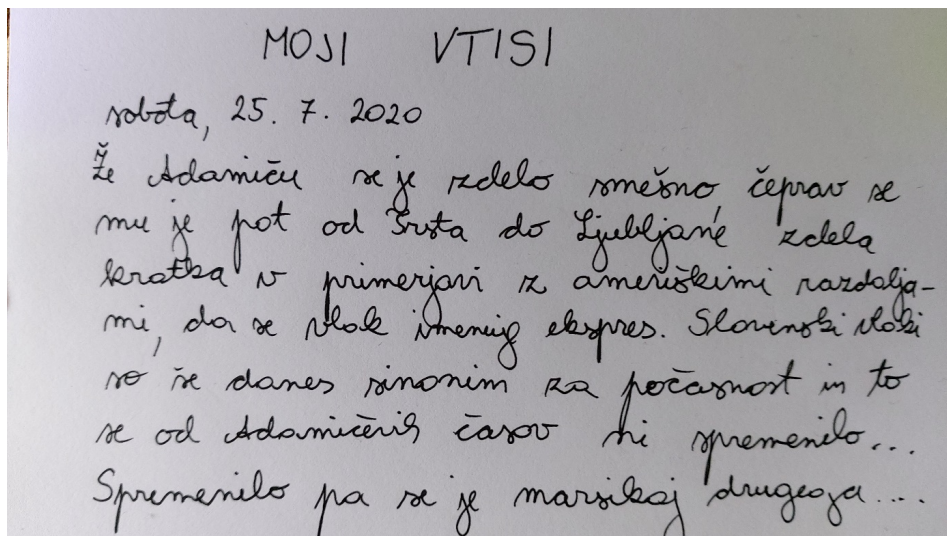 MOJI VTISI
sobota, 25. 7. 2020
Že Adamiču se je zdelo smešno, čeprav se
mu je pot od Trsta do Ljubljane zdela
kratka v primerjavi z ameriškimi razdalja-
mi, da se vlak imenuje ekspres. Slovenski vlaki
so še danes sinonim za počasnost in to
se od Adamičevih časov ni spremenilo...
Spremenilo pa se je marsikaj drugega....